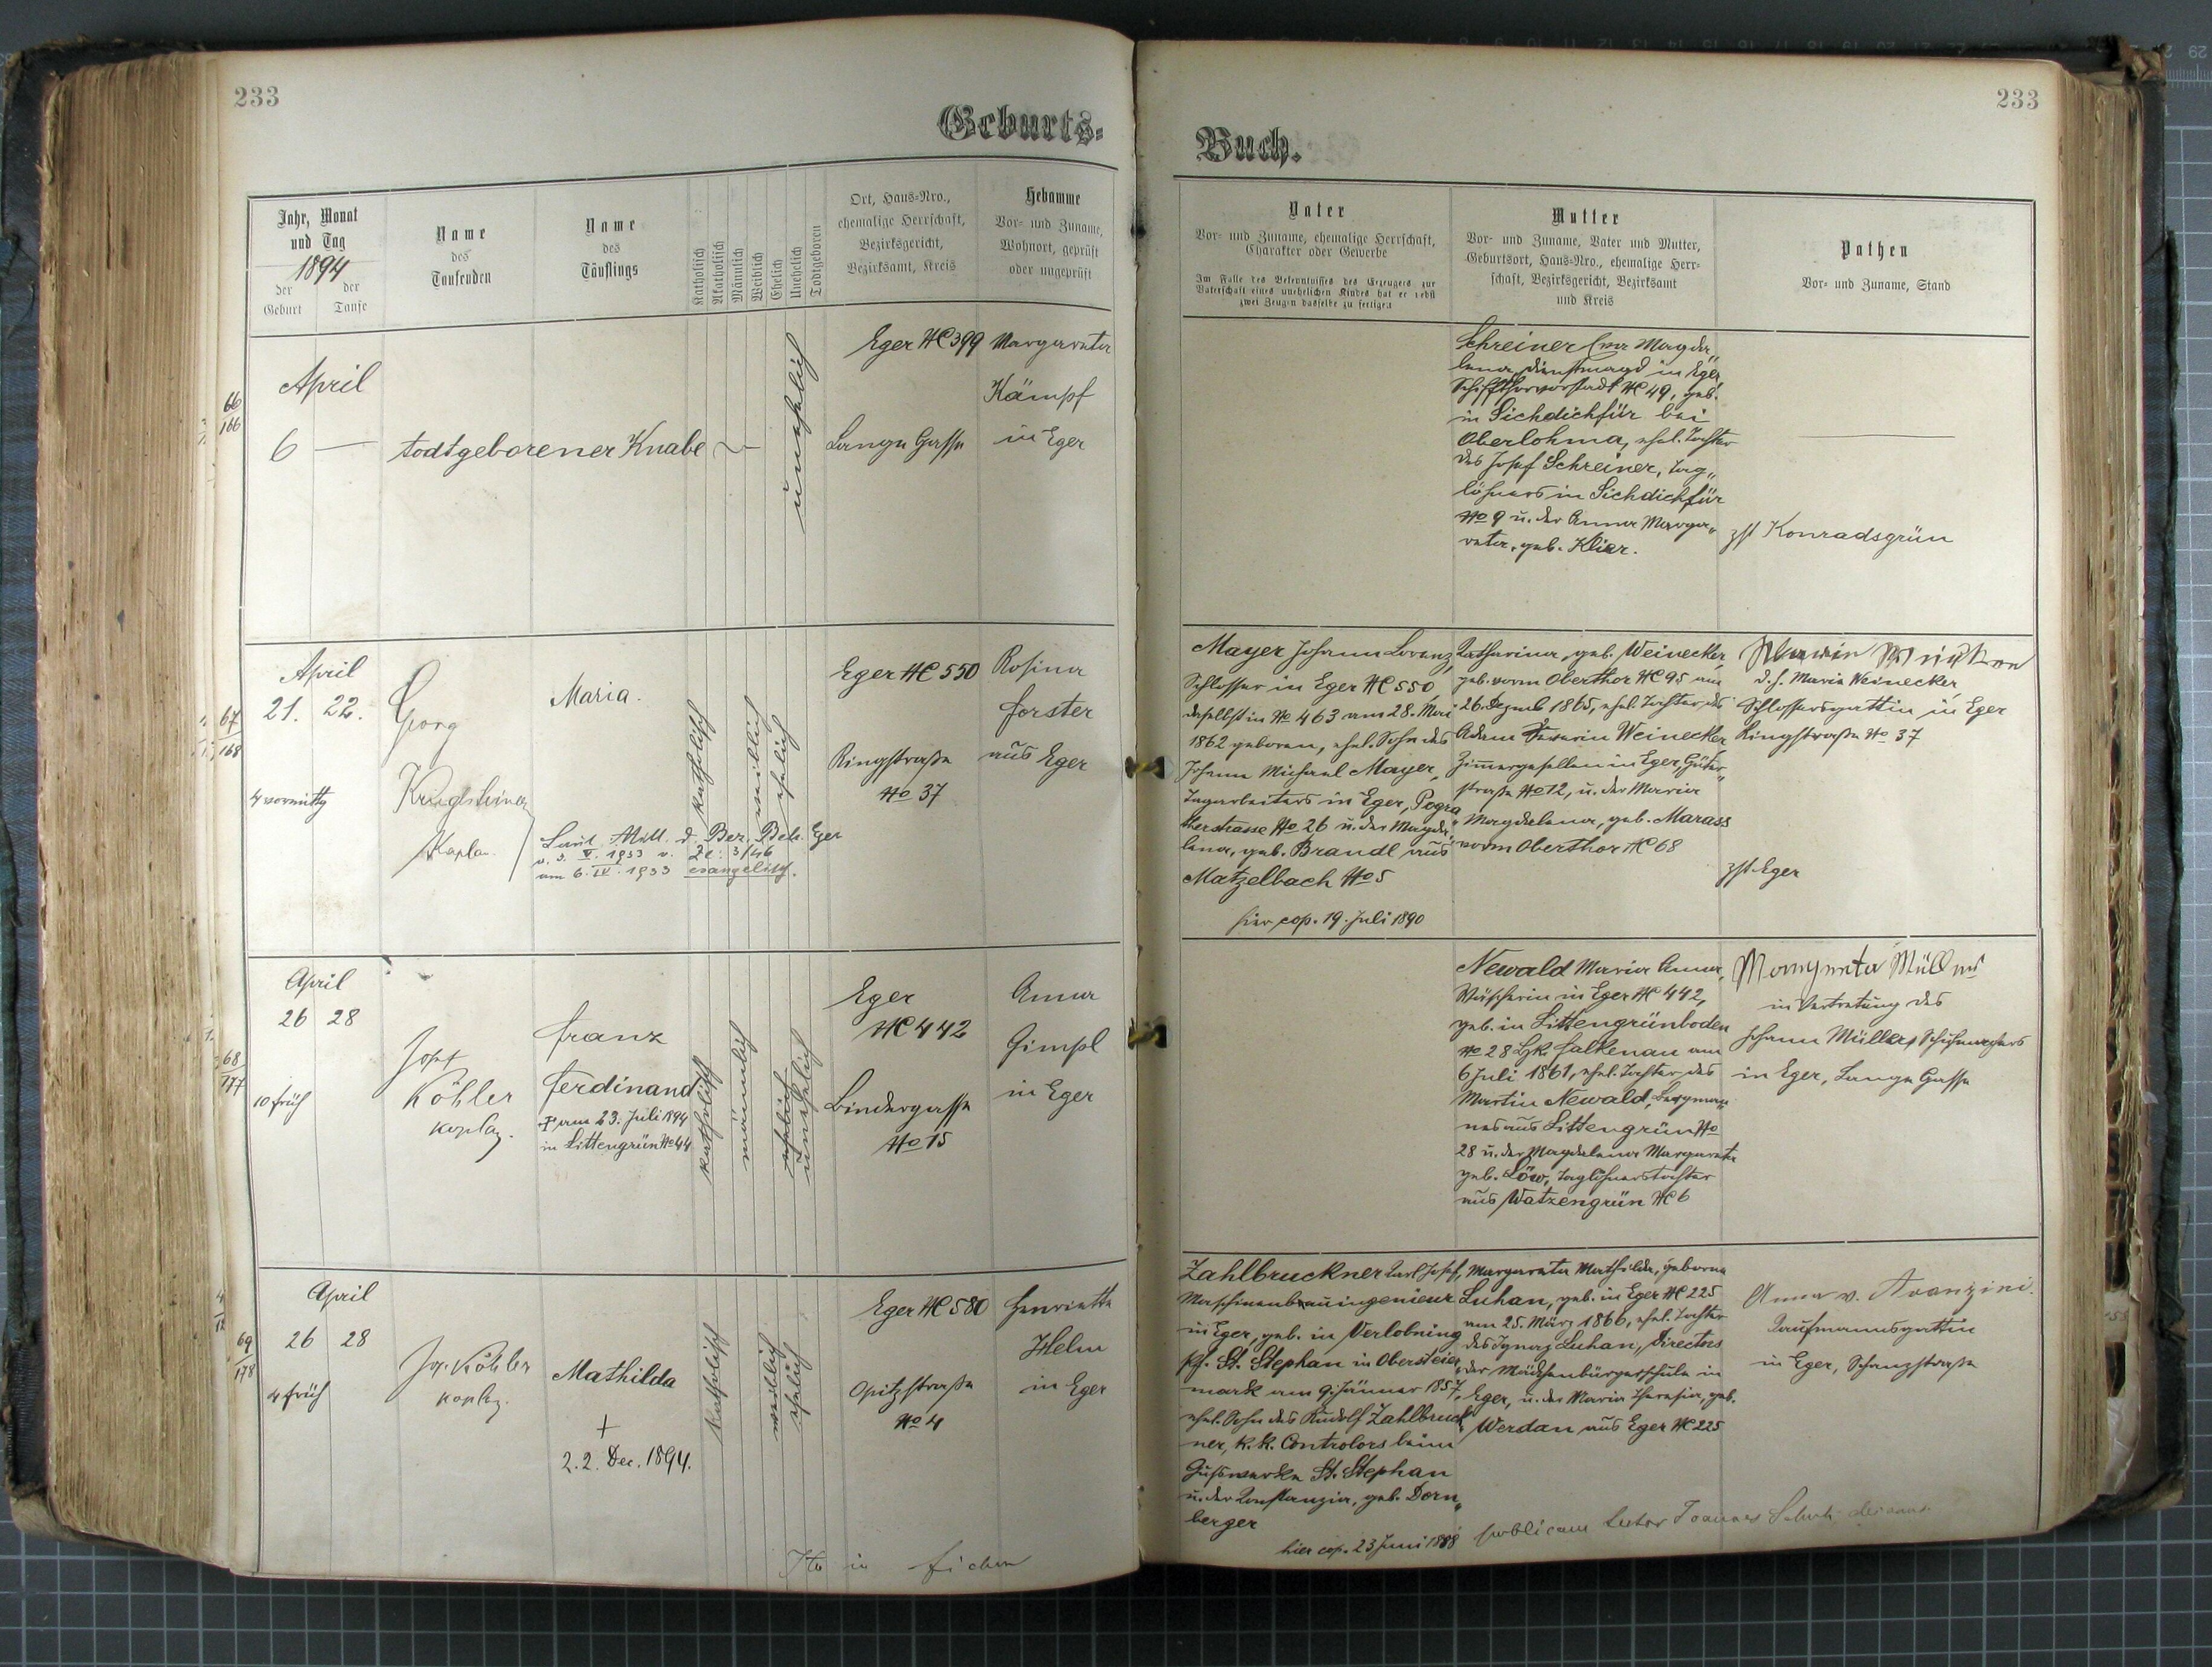 233
Geburts-
Jahr, Monat
und Tag
1894
der
Geburt
der
Taufe
Name
des
Taufenden
Name
des
Täuflings
Katholisch
Akatholisch
Männlich
Weiblich
Ehelich
Unehelich
Todtgeboren
Ort, Haus-Nro.,
ehemalige Herrschaft,
Bezirksgericht,
Bezirksamt, Kreis
Hebamme
Vor- und Zuname,
Wohnort, geprüft
oder ungeprüft
66
166
April
6 —
todtgeborener Knabe
unehelich
Eger NC 399
Lange Gasse
Margareta
Kämpf
in Eger
67
168
April
21. 22.
4 vormittg
Georg
Kaplan
Maria.
Laut Mitt. d. Bez. Beh. Eger
v. 3. V. 1933 v. Zl: 3/46
am 6. IV. 1933 evangelisch.
katholisch
weiblich
ehelich
Eger NC 550
Ringstraße
No 37
Rosina
Forster
aus Eger
68
177
April
26 28
10 früh
Josef
Köhler
Kaplan.
Franz
Ferdinand
† am 23. Juli 1894
in Littengrün No 44
katholisch
männlich
ehelich
unehelich
Eger
NC 442
Bindergasse
No 15
Anna
Gimpl
in Eger
69
178
April
26 28
4 früh
Jos. Köhler
Kaplan.
Mathilda
+
22. Dec. 1894.
katholisch
weiblich
ehelich
Eger NC 580
Opitzstraße
No 4
Henriette
Helm
in Eger
233
Buch.
Vater
Vor- und Zuname, ehemalige Herrschaft,
Charakter oder Gewerbe
Im Falle des Bekenntnisses des Erzeugers zur
Vaterschaft eines unehelichen Kindes hat er nebst
zwei Zeugen dasselbe zu fertigen
Mutter
Vor- und Zuname, Vater und Mutter,
Geburtsort, Haus-Nro., ehemalige Herr-
schaft, Bezirksgericht, Bezirksamt
und Kreis
Pathen
Vor- und Zuname, Stand
Schreiner Eva Magda„
lena, Dienstmagd in Eger
Schiffthorvorstadt NC 49, geb.
in Sichdichfür bei
Oberlohma, ehel. Tochter
des Josef Schreiner, Tag„
löhners in Sichdichfür
No 9 u. der Anna Marga„
reta, geb. Klier.
zst Konradsgrün
Mayer Johann Lorenz,
Schlosser in Eger NC 550,
daselbst in No 463 am 28. Mai
1862 geboren, ehel. Sohn des
Johann Michael Mayer,
Tagarbeiters in Eger, Pogra
therstrasse No 26 u. der Magda„
lena, geb. Brandl aus
Matzelbach No 5
hier cop. 19. Juli 1890
Katharina, geb. Weinecker,
geb. vorm Oberthor NC 95 am
26. Dezemb 1865, ehel. Tochter des
Adam Weinecker
Zimmergesellen in Eger, Güter„
straße No 12, u. der Maria
Magdalena, geb. Marass
vorm Oberthor NC 68
d. h. Maria Weinecker,
Schlossersgattin in Eger
Ringstraße No 37
zst Eger
Newald Maria Anna,
Wäscherin in Eger NC 442,
geb. in Littengrünboden
No 28 Bzk. Falkenau am
6 Juli 1861, ehel. Tochter des
Martin Newald, Bergman„
nes aus Littengrün No
28 u. der Magdalena Margareta
geb. Löw, Taglöhnerstochter
aus Watzengrün NC 6
Margareta Müller
in Vertretung des
Johann Müller, Schuhmachers
in Eger, Lange Gasse
Zahlbruckner Karl Josef,
Maschinenbauingenieur
in Eger, geb. in Verlobning
Pf. St. Stephan in Obersteier„
mark am 9. Jänner 1857,
ehel. Sohn des Rudolf Zahlbruck„
ner, k. k. Controlors beim
Gußwerke St. Stephan
u. der Konstanzia, geb. Dorn„
berger
hier cop. 23 Juni 1888
Margareta Mathilda, geborene
Luhan, geb. in Eger NC 225
am 25. März 1866, ehel. Tochter
des Ignaz Luhan, Directors
der Mädchenbürgerschule in
Eger, u. der Maria Theresia, geb.
Werdan aus Eger NC 225
Anna v. Avanzini.
Kaufmannsgattin
in Eger, Schanzstraße